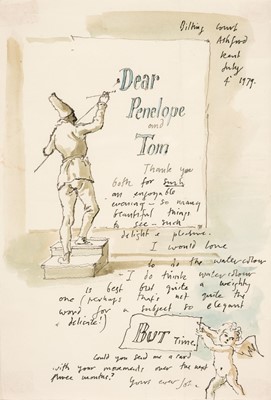 Bilting Court
Ashford
Kent
July
4 1979.
Dear
Penelope
and
Tom
Thank you
both for such
an enjoyable
evening – so many
beautiful things
to see – such
delight & pleasure.
I would love
to do the watercolour
– I do think watercolour
is best but quite a weighty
one (perhaps that's not quite the
word for a subject so elegant
& delicate!)
BUT Time,
Could you send me a card
with your movements over the next
three months?
Yours ever